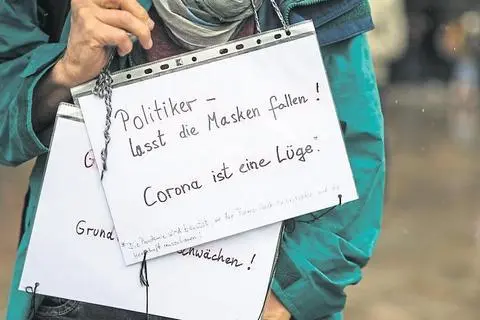 Politiker -
lasst die Masken fallen!
Corona ist eine Lüge.*
* Die Pandemie wird benutzt, um der
G
Grund
schwächen!